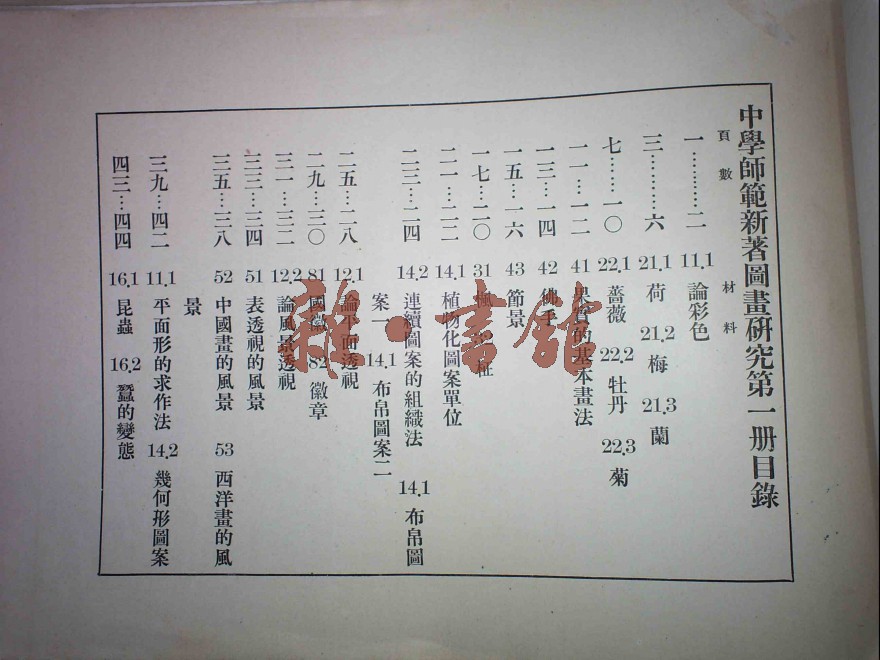 中學師範新著圖畫研究第一册目錄
頁數 材料
一…………二 11.1 論彩色
三…………六 21.1 荷 21.2 梅 21.3 蘭
七……一〇 22.1 薔薇 22.2 牡丹 22.3 菊
一一…一二 41 果實的基本畫法
一三…一四 42 佛手
一五…一六 43 節景
一七…二〇 31 楓 32
二一…二二 14.1 植物化圖案單位
二三…二四 14.2 連續圖案的組織法 14.1 布帛圖
案一 14.1 布帛圖案二
二五…二八 12.1 論平面透視
二九…三〇 81 國徽 82 徽章
三一…三二 12.2 論風景透視
三三…三四 51 表透視的風景
三五…三八 52 中國畫的風景 53 西洋畫的風
景
三九…四二 11.1 平面形的求作法 14.2 幾何形圖案
四三…四四 16.1 昆蟲 16.2 蠶的變態
雜·書館